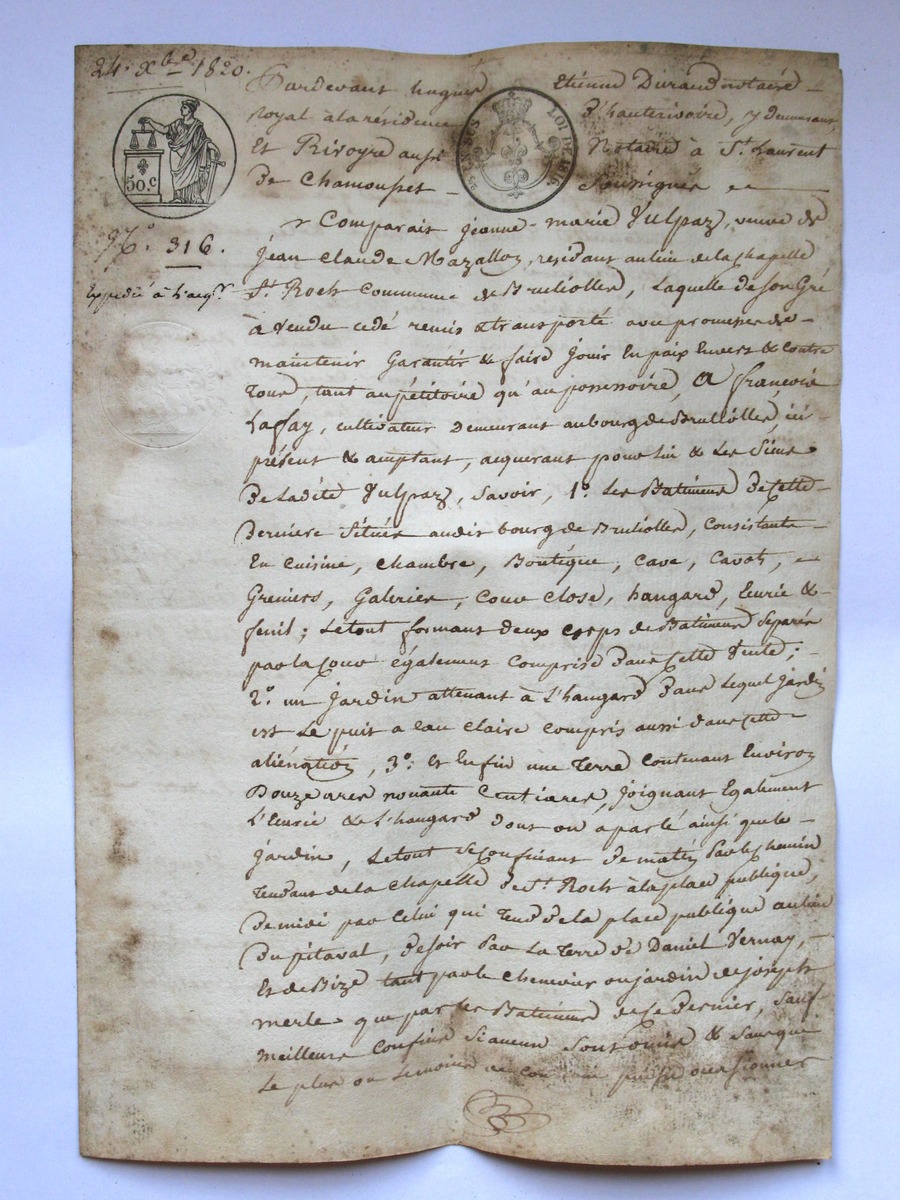 24. Xbre 1820.
50.c
25 EN SUS LOI DE 1816
N.° 316.
Expédié à l'acqr.
Pardevant hugues Etienne Durand notaire
royal à la résidence d'hauterivoire, y demeurant,
Et Rivoyre aussi Notaire à St. Laurent
De Chamousset Soussignés
Comparait jeanne-marie Vulpaz, veuve de
jean claude Mazallon, résidant au lieu de la chapelle
St. Roch Commune de Brullolles, Laquelle de son Gré
à Vendu cédé remis & transporté avec promesse de
maintenir Garantir & faire jouir En paix Envers & Contre
Tous, tant au pétitoire qu'au possessoire, A françois
Laffay, cultivateur Demeurant au bourg de Brullolles, ici
présent & acceptant, acquerant pour lui & Les Siens
De Ladite Vulpaz, Savoir, 1.° Les Batimens De Cette
Derniere Situés audit bourg de Brullolles, Consistants
En Cuisine, Chambre, Boutique, Cave, Cavat,
Greniers, Galeries, Cour Close, hangard, Ecurie &
fenil; Le tout formant deux Corps de Batimens Séparés
par la Cour également Comprise Dans Cette Vente;
2.° un Jardin attenant à L'hangard Dans Lequel jardin
est Le puit a eau Claire Compris aussi dans Cette
aliénation, 3.° Et Enfin une Terre Contenant Environ
Douze ares nonante Centiares, joignant Egalement
L'Ecurie & L'hangard dont on a parlé ainsi que le
jardin, Le tout Se Confinant De matin Par le Chemin
Tendant de la Chapelle De St. Roch à la place publique,
De midi par Celui qui Tend de la place publique au lieu
Du pitaval, De soir Par La Terre De Daniel Vernay,
Et de Bize tant par le Chenevier ou jardin de joseph
merle que par Les Batimens de Ce Dernier, Sauf
meilleurs Confins Si aucuns Sont omis & Sans que
Le plus ou Le moins de puisse occasionner